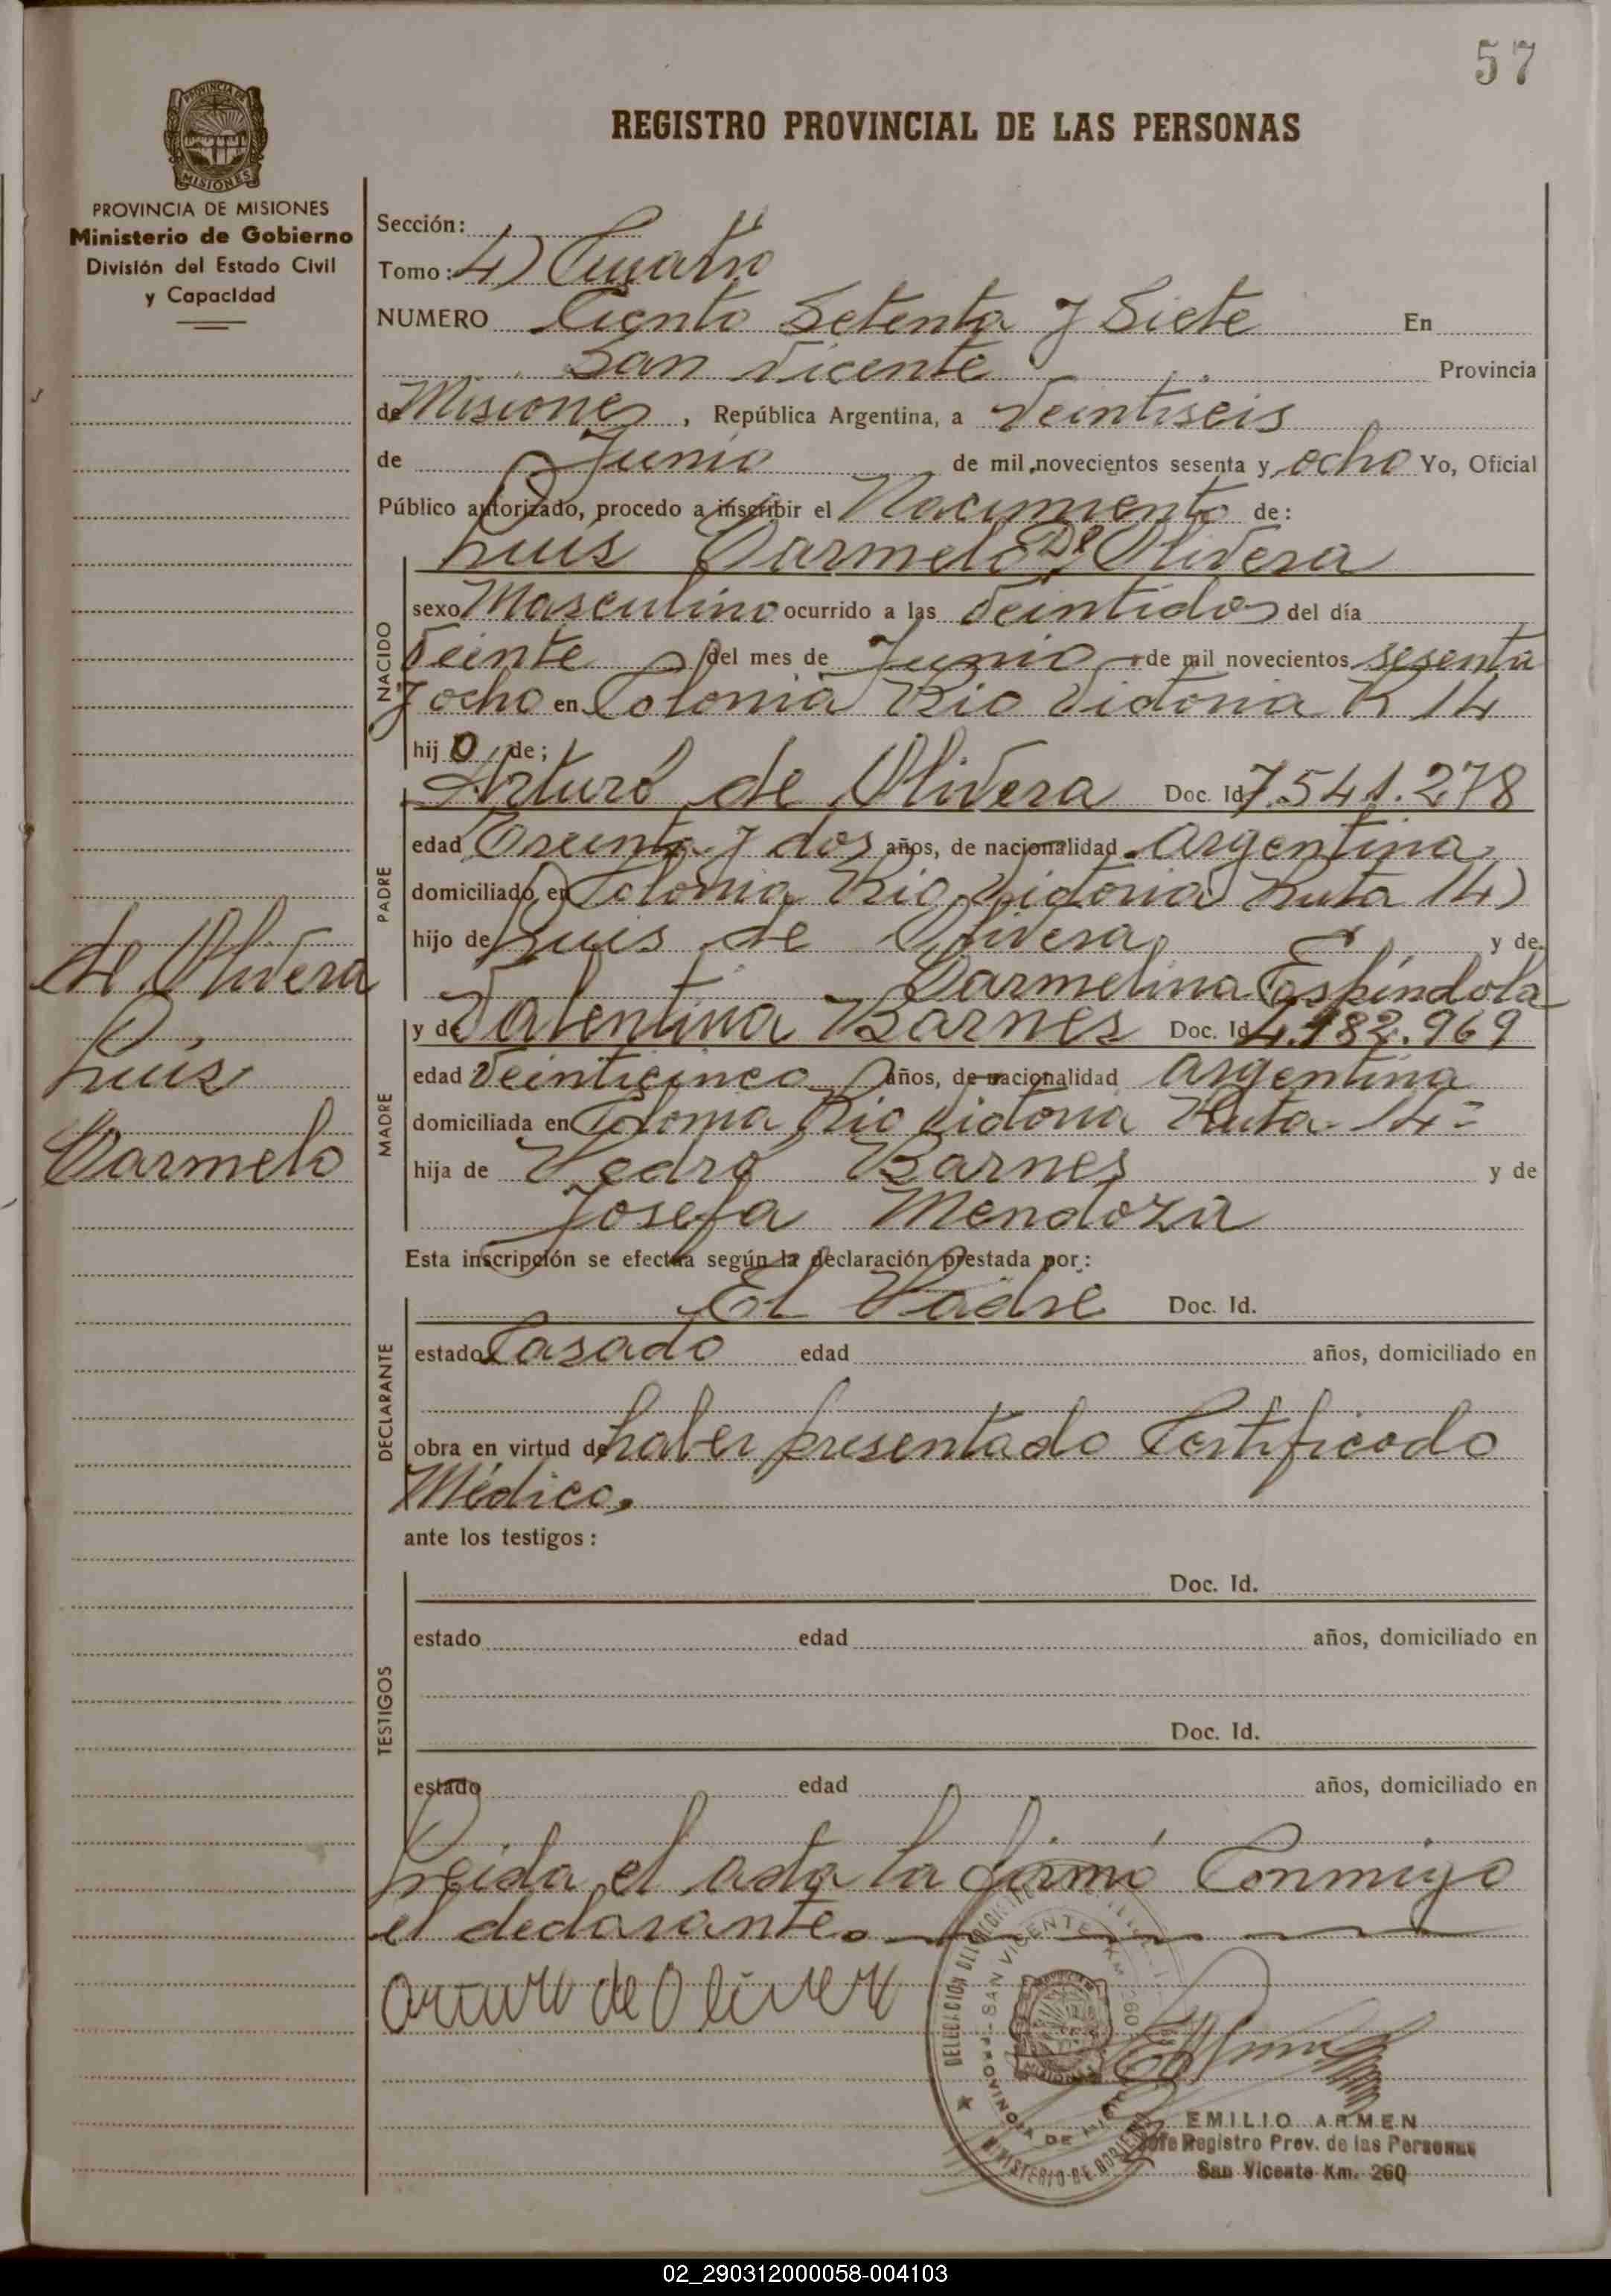 57
REGISTRO PROVINCIAL DE LAS PERSONAS
PROVINCIA DE MISIONES
PROVINCIA DE MISIONES
Ministerio de Gobierno
División del Estado Civil
y Capacidad
Sección:
Tomo: 4) Cuatro
NUMERO Ciento Setenta y Siete En
San Vicente Provincia
de Misiones, República Argentina, a Veintiseis
de Junio de mil novecientos sesenta y ocho Yo, Oficial
Público autorizado, procedo a inscribir el Nacimiento de:
Luis Carmelo De Olivera
NACIDO
sexo Masculino ocurrido a las Veintidos del día
Veinte del mes de Junio de mil novecientos sesenta
y ocho en Colonia Rio Victoria R 14
hijo de;
PADRE
Arturo de Olivera Doc. Id 7.541.278
edad Treinta y dos años, de nacionalidad Argentina
domiciliado en Colonia Rio Victoria Ruta 14)
hijo de Luis de Olivera y de
Carmelina Espíndola
MADRE
y de Valentina Barnes Doc. Id 4.982.969
edad Veinticinco años, de nacionalidad Argentina
domiciliada en Colonia Rio Victoria Ruta 14=
hija de Pedro Barnes y de
Josefa Mendoza
de Olivera
Luis
Carmelo
Esta inscripción se efectúa según la declaración prestada por:
DECLARANTE
El Padre Doc. Id.
estado Casado edad años, domiciliado en
obra en virtud de haber presentado Certificado
Médico.
ante los testigos:
TESTIGOS
Doc. Id.
estado edad años, domiciliado en
Doc. Id.
estado edad años, domiciliado en
Leida el acta la firmó Conmigo
el declarante.
Arturo de Oliver
SAN VICENTE KM 260
PROVINCIA DE MISIONES
MINISTERIO DE GOBIERNO
EMILIO ARMEN
Jefe Registro Prov. de las Personas
San Vicente Km. 260
02_290312000058-004103